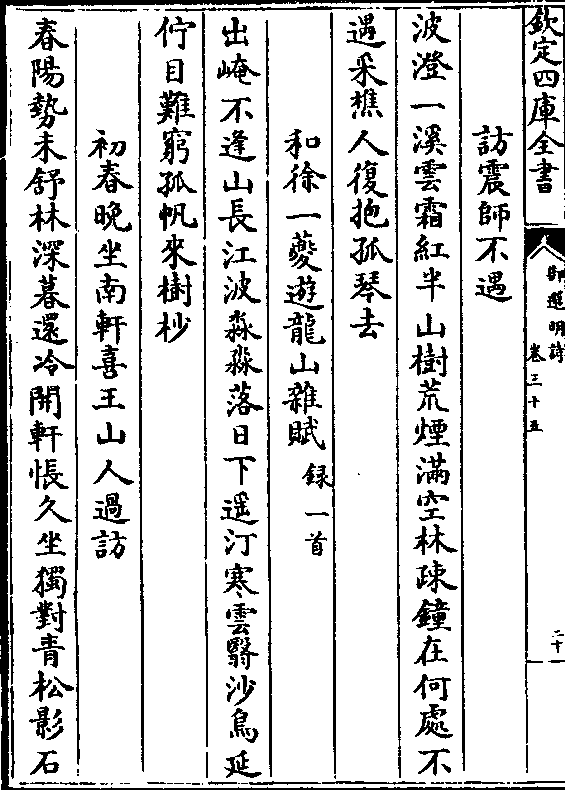 欽定四庫全書
御選明詩
卷三十五
二十
訪震師不遇
波澄一溪雲霜紅半山樹荒煙滿空林疎鐘在何處不
遇采樵人復抱孤琴去
和徐一夔遊龍山雜賦錄一首
出崦不逢山長江波淼淼落日下遥汀寒雲翳沙鳥延
佇目難窮孤帆來樹杪
初春晚坐南軒喜王山人過訪
春陽勢未舒林深暮還冷開軒悵久坐獨對青松影石